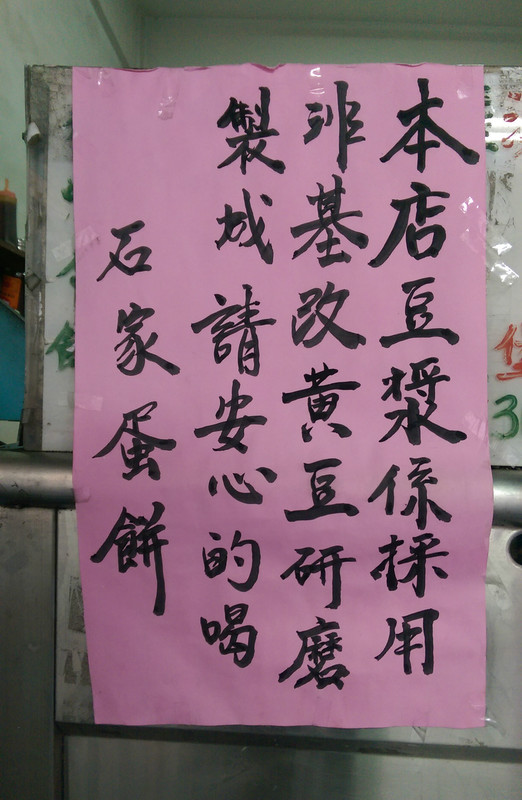 本店豆漿係採用
非基改黃豆研磨
製成請安心的喝
石家蛋餅